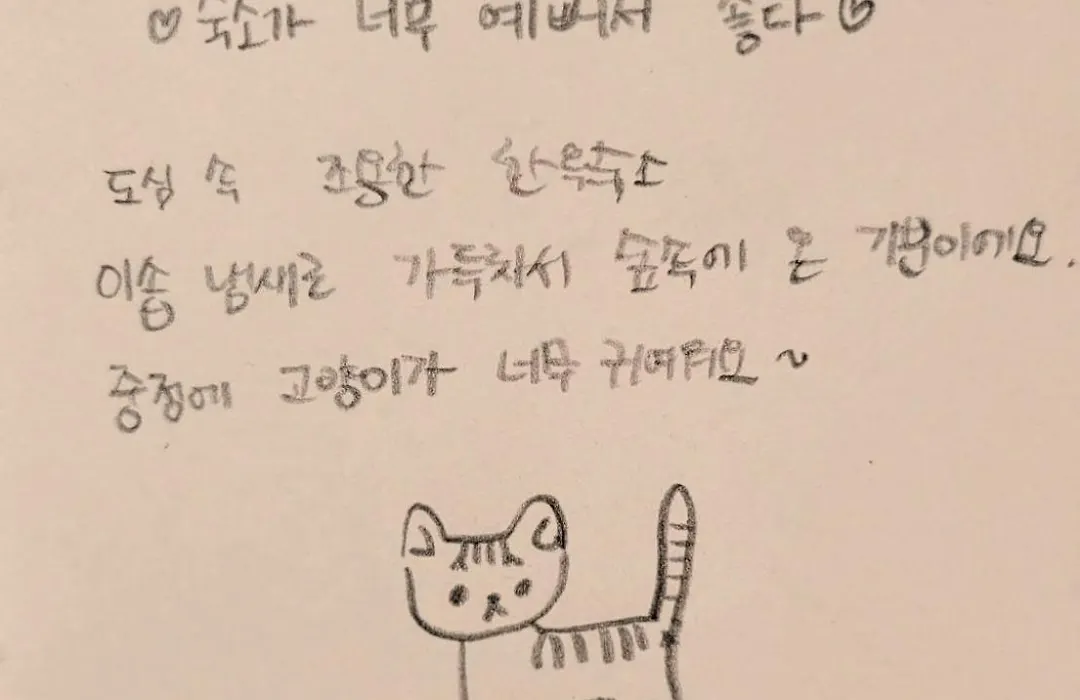 ♡ 숙소가 너무 예뻐서 좋다 ♡
도심 속 조용한 한옥숙소
이솝 냄새로 가득차서 숲속에 온 기분이에요.
중정에 고양이가 너무 귀여워요 ~